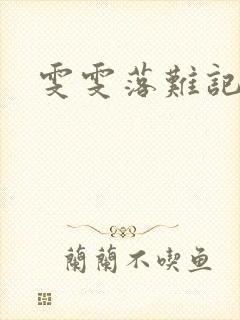 雯雯落難記
蘭蘭不喫鱼